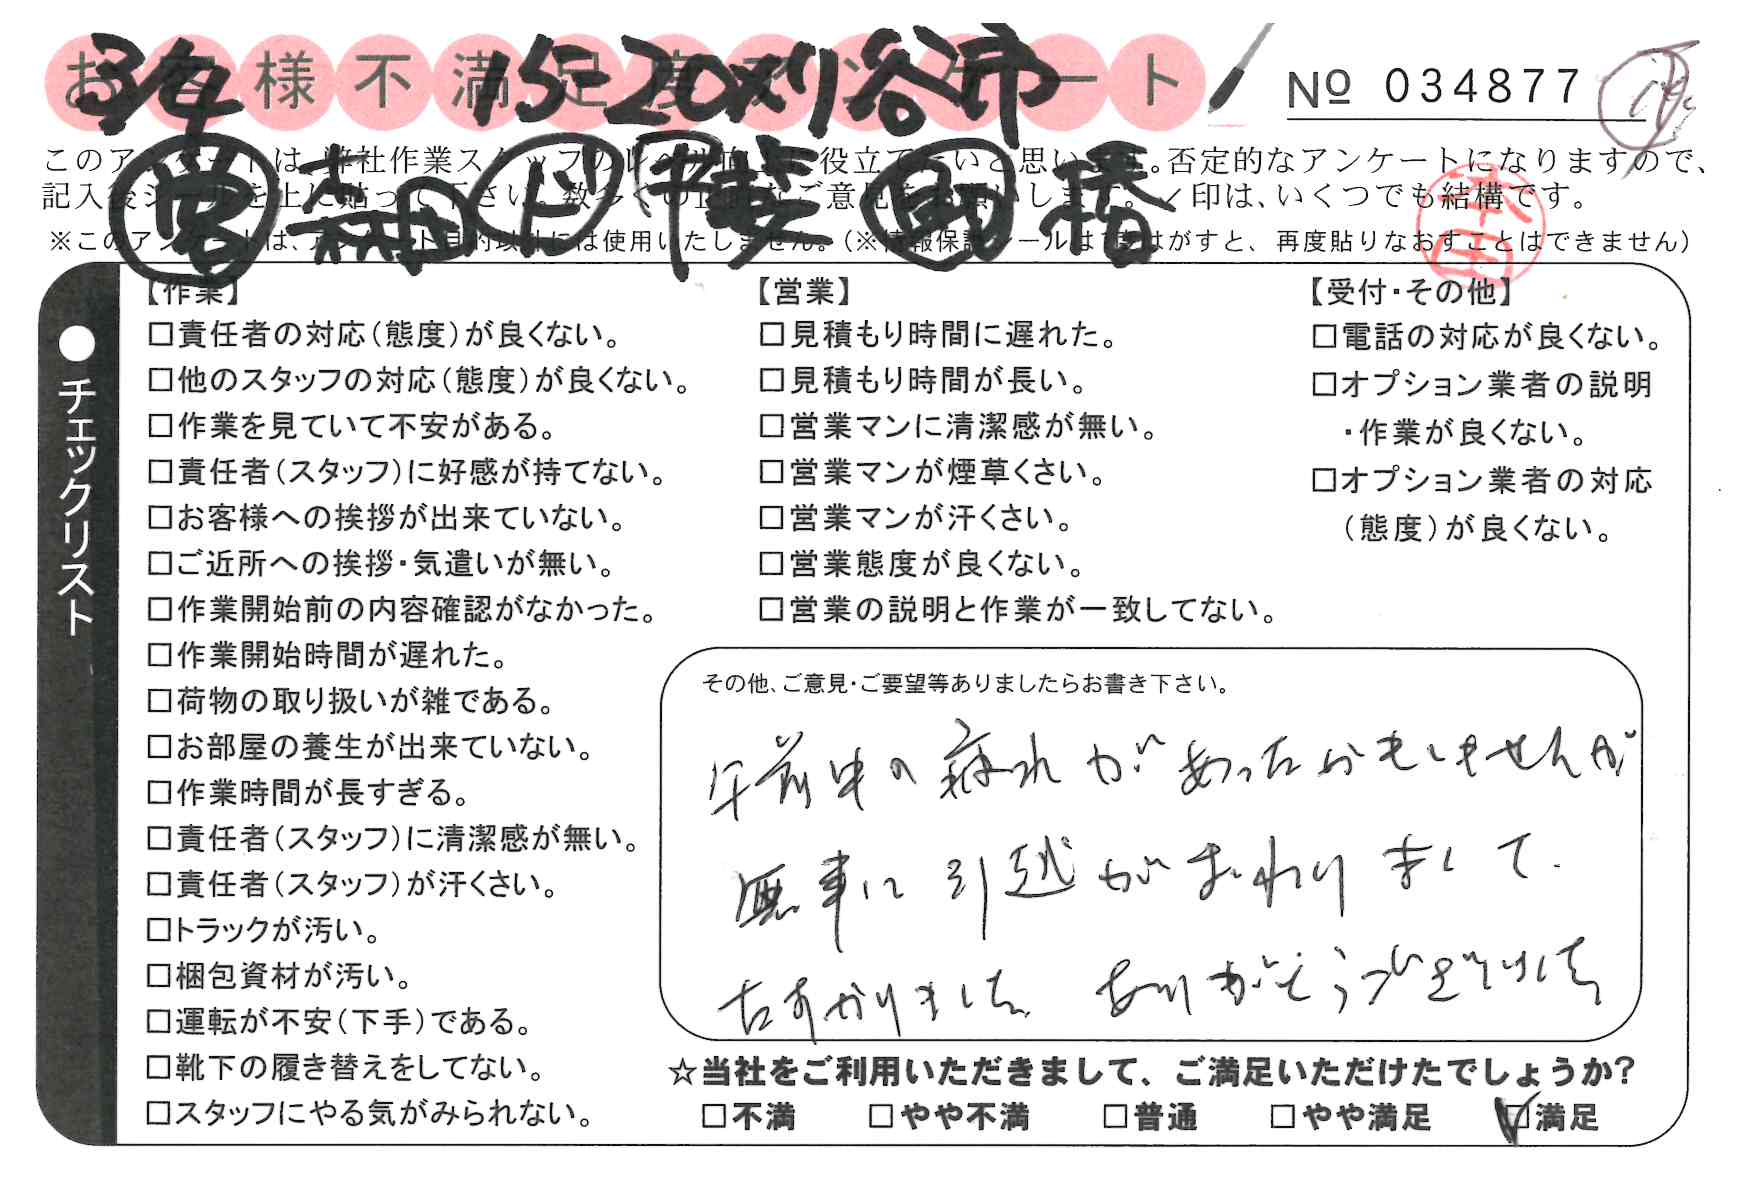 お客様不満足度アンケート
3/4 15-20 刈谷市
№ 034877
このアンケートは、弊社作業スタッフのレベル向上に役立てたいと思います。否定的なアンケートになりますので、
記入後シールを上に貼って下さい。数多くの正直なご意見をお願いします。✓印は、いくつでも結構です。
※このアンケートは、アンケート目的以外には使用いたしません。(※情報保護シールは1度はがすと、再度貼りなおすことはできません)
営 森田 ド 甲斐 助 橋
本田
●チェックリスト
【作業】
□責任者の対応(態度)が良くない。
□他のスタッフの対応(態度)が良くない。
□作業を見ていて不安がある。
□責任者(スタッフ)に好感が持てない。
□お客様への挨拶が出来ていない。
□ご近所への挨拶・気遣いが無い。
□作業開始前の内容確認がなかった。
□作業開始時間が遅れた。
□荷物の取り扱いが雑である。
□お部屋の養生が出来ていない。
□作業時間が長すぎる。
□責任者(スタッフ)に清潔感が無い。
□責任者(スタッフ)が汗くさい。
□トラックが汚い。
□梱包資材が汚い。
□運転が不安(下手)である。
□靴下の履き替えをしてない。
□スタッフにやる気がみられない。
【営業】
□見積もり時間に遅れた。
□見積もり時間が長い。
□営業マンに清潔感が無い。
□営業マンが煙草くさい。
□営業マンが汗くさい。
□営業態度が良くない。
□営業の説明と作業が一致してない。
【受付・その他】
□電話の対応が良くない。
□オプション業者の説明
・作業が良くない。
□オプション業者の対応
(態度)が良くない。
その他、ご意見・ご要望等ありましたらお書き下さい。
午前中の疲れがあったかもしませんが
無事に引越がおわりまして
たすかりました ありがとうございました
☆当社をご利用いただきまして、ご満足いただけたでしょうか?
□不満 □やや不満 □普通 □やや満足 ☑満足